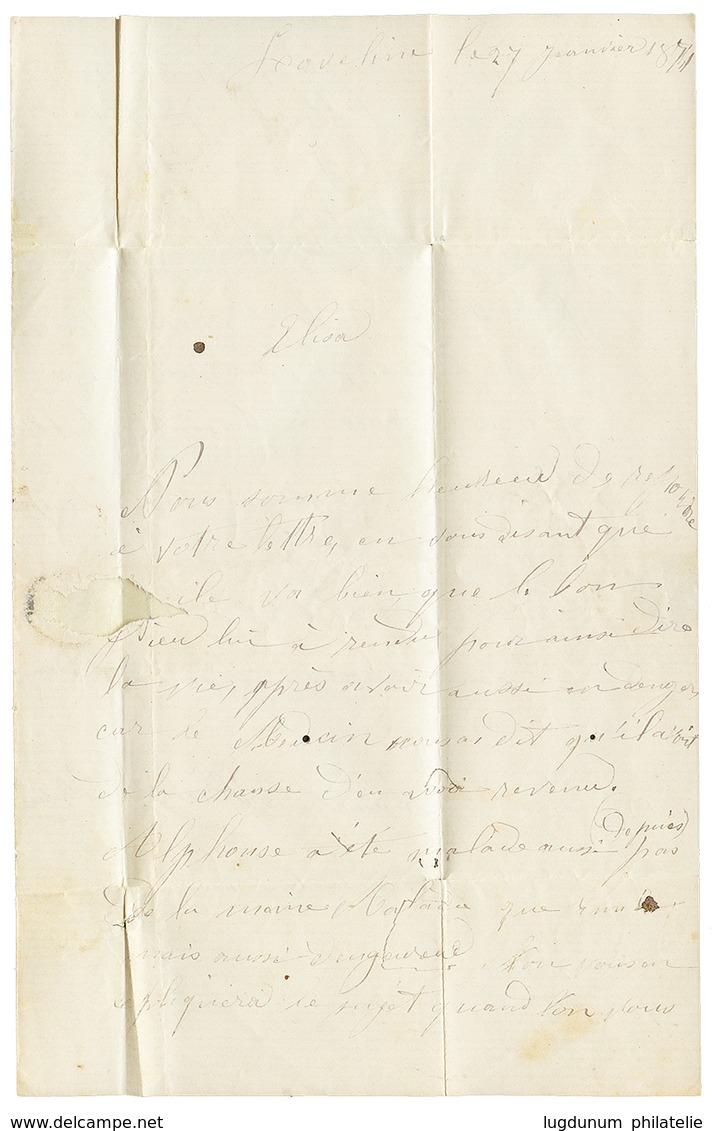 Laveline le 27 janvier 1871
Elisa
Nous somme heureux de répondre
à votre lettre, en vous disant que
ile va bien, que le bon
Dieu lui à rendu pour ainsi dire
la vie, après avoir aussi en
car le Medecin nous as dit qu'il avait
de la chanse d'en avoir revenu.
Alphonse a été malade aussi (depuies) pas
De la maime Maladie que
mais aussi . L'on vous en
expliquera le sujet quand l'on vous
lugdunum philatelie